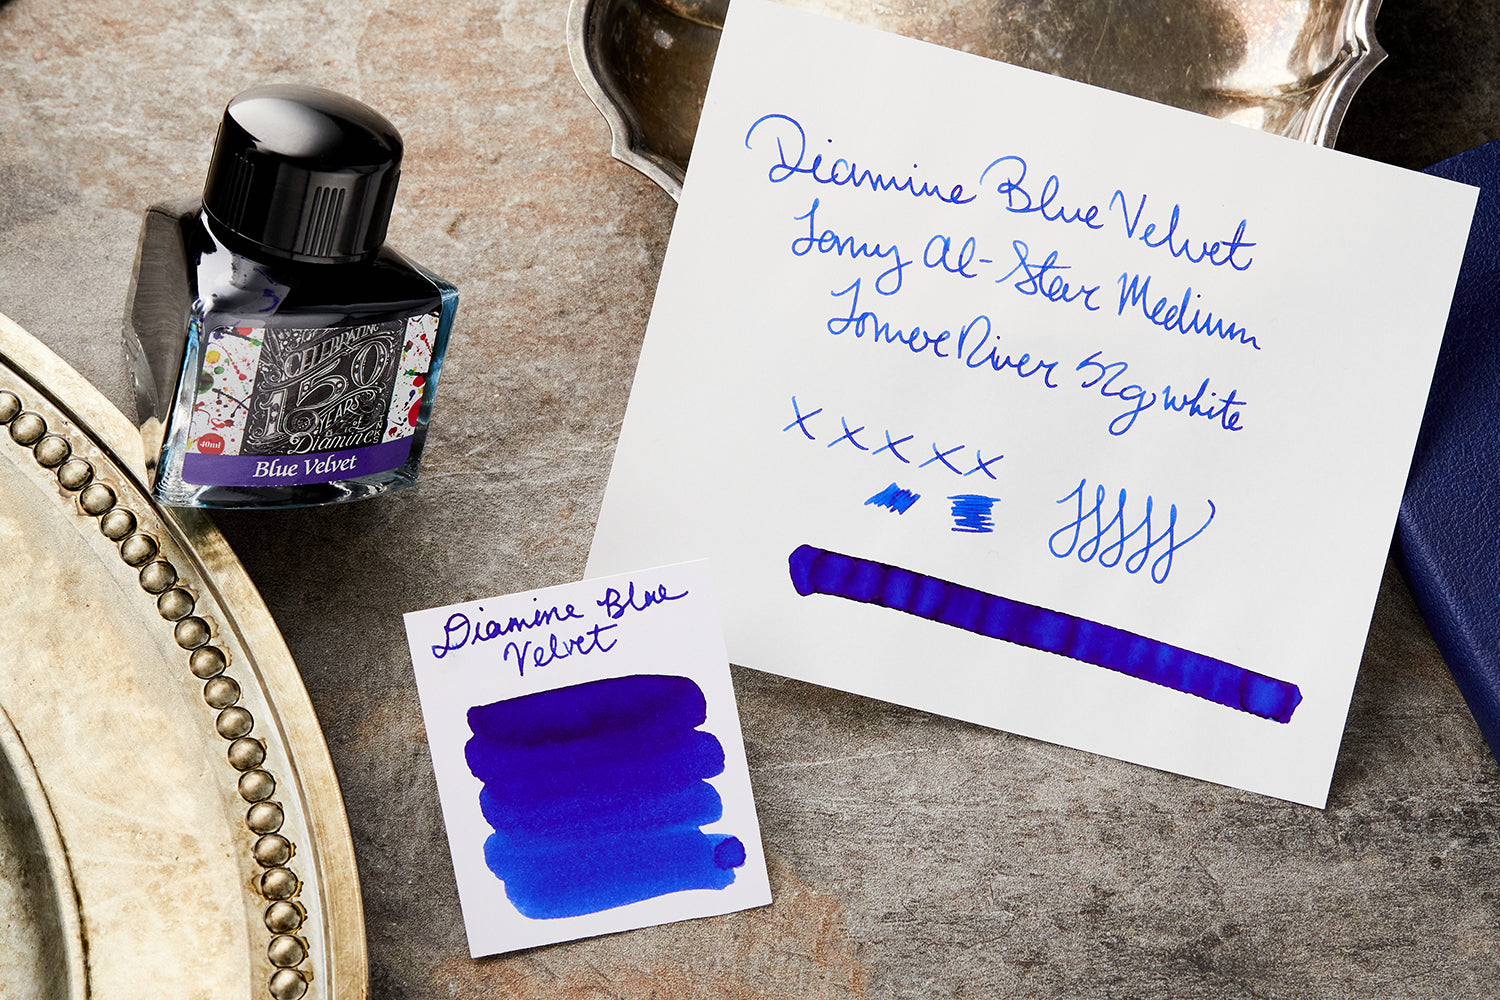 CELEBRATING
150
YEARS of
Diamine
INKS
40ml
Blue Velvet
Diamine Blue Velvet
Lamy Al-Star Medium
Tomoe River 52g white
x x x x x
Diamine Blue
Velvet